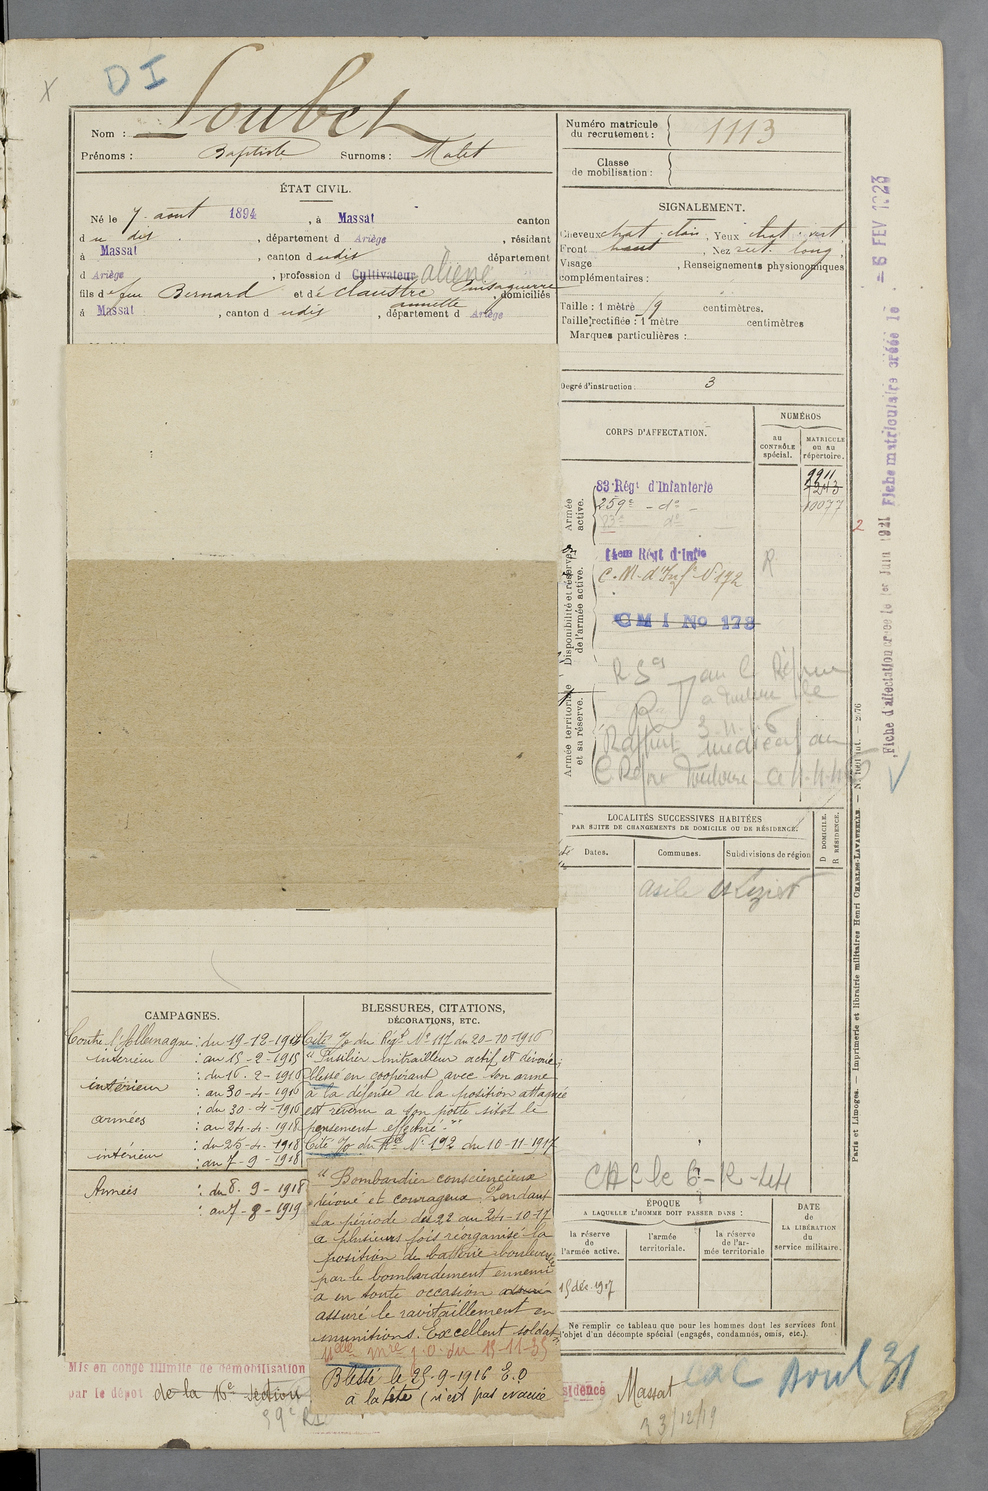 X
D I
Nom : Loubet
Prénoms : Baptiste Surnoms : Malet
ÉTAT CIVIL.
Né le 7 aout 1894, à Massat canton
du dis, département d Ariège, résidant
à Massat, canton d udis département
d Ariège, profession d Cultivateur aliéné
fils de feu Bernard et de Claustre annette, domiciliés
à Massat, canton d udis, département d Ariège
Numéro matricule
du recrutement : 1113
Classe
de mobilisation :
SIGNALEMENT.
Cheveux chat. clair, Yeux chat. vert
Front haut, Nez rect. long
Visage , Renseignements physionomiques
complémentaires :
Taille : 1 mètre 79 centimètres.
Taille rectifiée : 1 mètre centimètres
Marques particulières :
Degré d'instruction : 3
CORPS D'AFFECTATION.
NUMÉROS
au
CONTRÔLE
spécial.
MATRICULE
ou au
répertoire.
Armée
active.
83e Régt d'Infanterie
259e - do -
83e do
9911
10077
2
Disponibilité et réserve
de l'armée active.
14eme Régt d'Infie
C. M. d'Infie No 192
R
C M I No 178
Armée territoriale
et sa réserve.
3-11-
Rapport médical au
C Toulouse
LOCALITÉS SUCCESSIVES HABITÉES
PAR SUITE DE CHANGEMENTS DE DOMICILE OU DE RÉSIDENCE.
Dates.
Communes.
Subdivisions de région
D DOMICILE.
R RÉSIDENCE.
asile St Lizier
CAMPAGNES.
Contre l'Allemagne : du 19-12-1914
intérieur : au 15-2-1915
: du 16-2-1916
intérieur : au 30-4-1916
: du 30-4-1916
armées : au 24-4-1918
: du 25-4-1918
intérieur : au 7-9-1918
Armées : du 8-9-1918
: au 7-8-1919
BLESSURES, CITATIONS,
DÉCORATIONS, ETC.
Cité do du Régt No 117 du 20-10-1916
"Fusilier mitrailleur actif et dévoué ;
blessé en coopérant avec son arme
à la défense de la position attaquée
est revenu a son poste sitot le
pensement effectué."
Cité do du No 192 du 10-11-1917
"Bombardier consciencieux
dévoué et courageux. Pendant
la période du 22 au 24-10-17
a plusieurs fois réorganisé la
position de batterie bouleversée
par le bombardement ennemi
a en toute occasion
assuré le ravitaillement en
munitions. Excellent soldat
Mlle Mre J.O. du 13-11-35
Blessé le 25-9-1916 E.O
à la tête (n'est pas évacué
CAC le 6-12-44
ÉPOQUE
A LAQUELLE L'HOMME DOIT PASSER DANS :
la réserve
de
l'armée active.
l'armée
territoriale.
la réserve
de l'ar-
mée territoriale
DATE
de
LA LIBÉRATION
du
service militaire.
15 déc. 1917
Ne remplir ce tableau que pour les hommes dont les services font
l'objet d'un décompte spécial (engagés, condamnés, omis, etc.).
Mis en congé illimité de démobilisation
par le dépot de la 16e section
59e RI
sidence Massat
23/12/19
cac Avril 31
Fiche matriculaire créée le 5 FEV 1923
Fiche d'affectation créée le 1er Juin 1921
Paris et Limoges. — Imprimerie et librairie militaires Henri CHARLES-LAVAUZELLE.